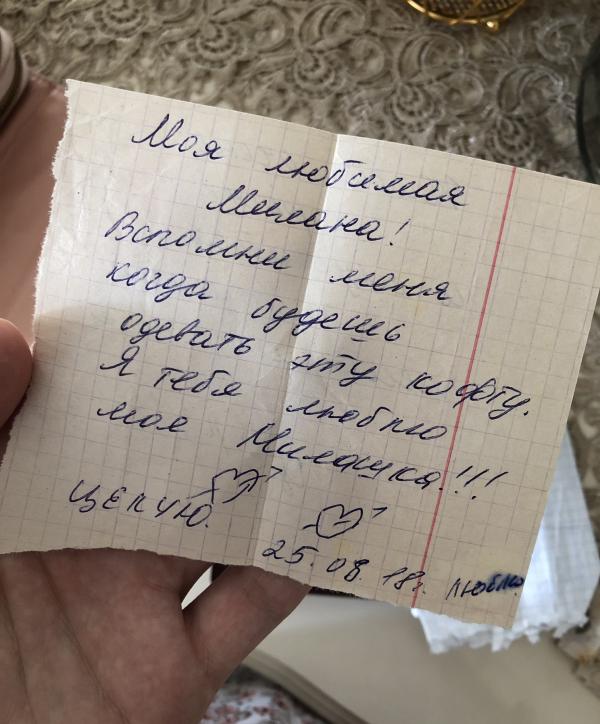 Моя любимая
Милана!
Вспомни меня
когда будешь
одевать эту кофту.
Я тебя люблю
моя Миланука!!!
ЦЕЛУЮ.
25.08.18г. люблю